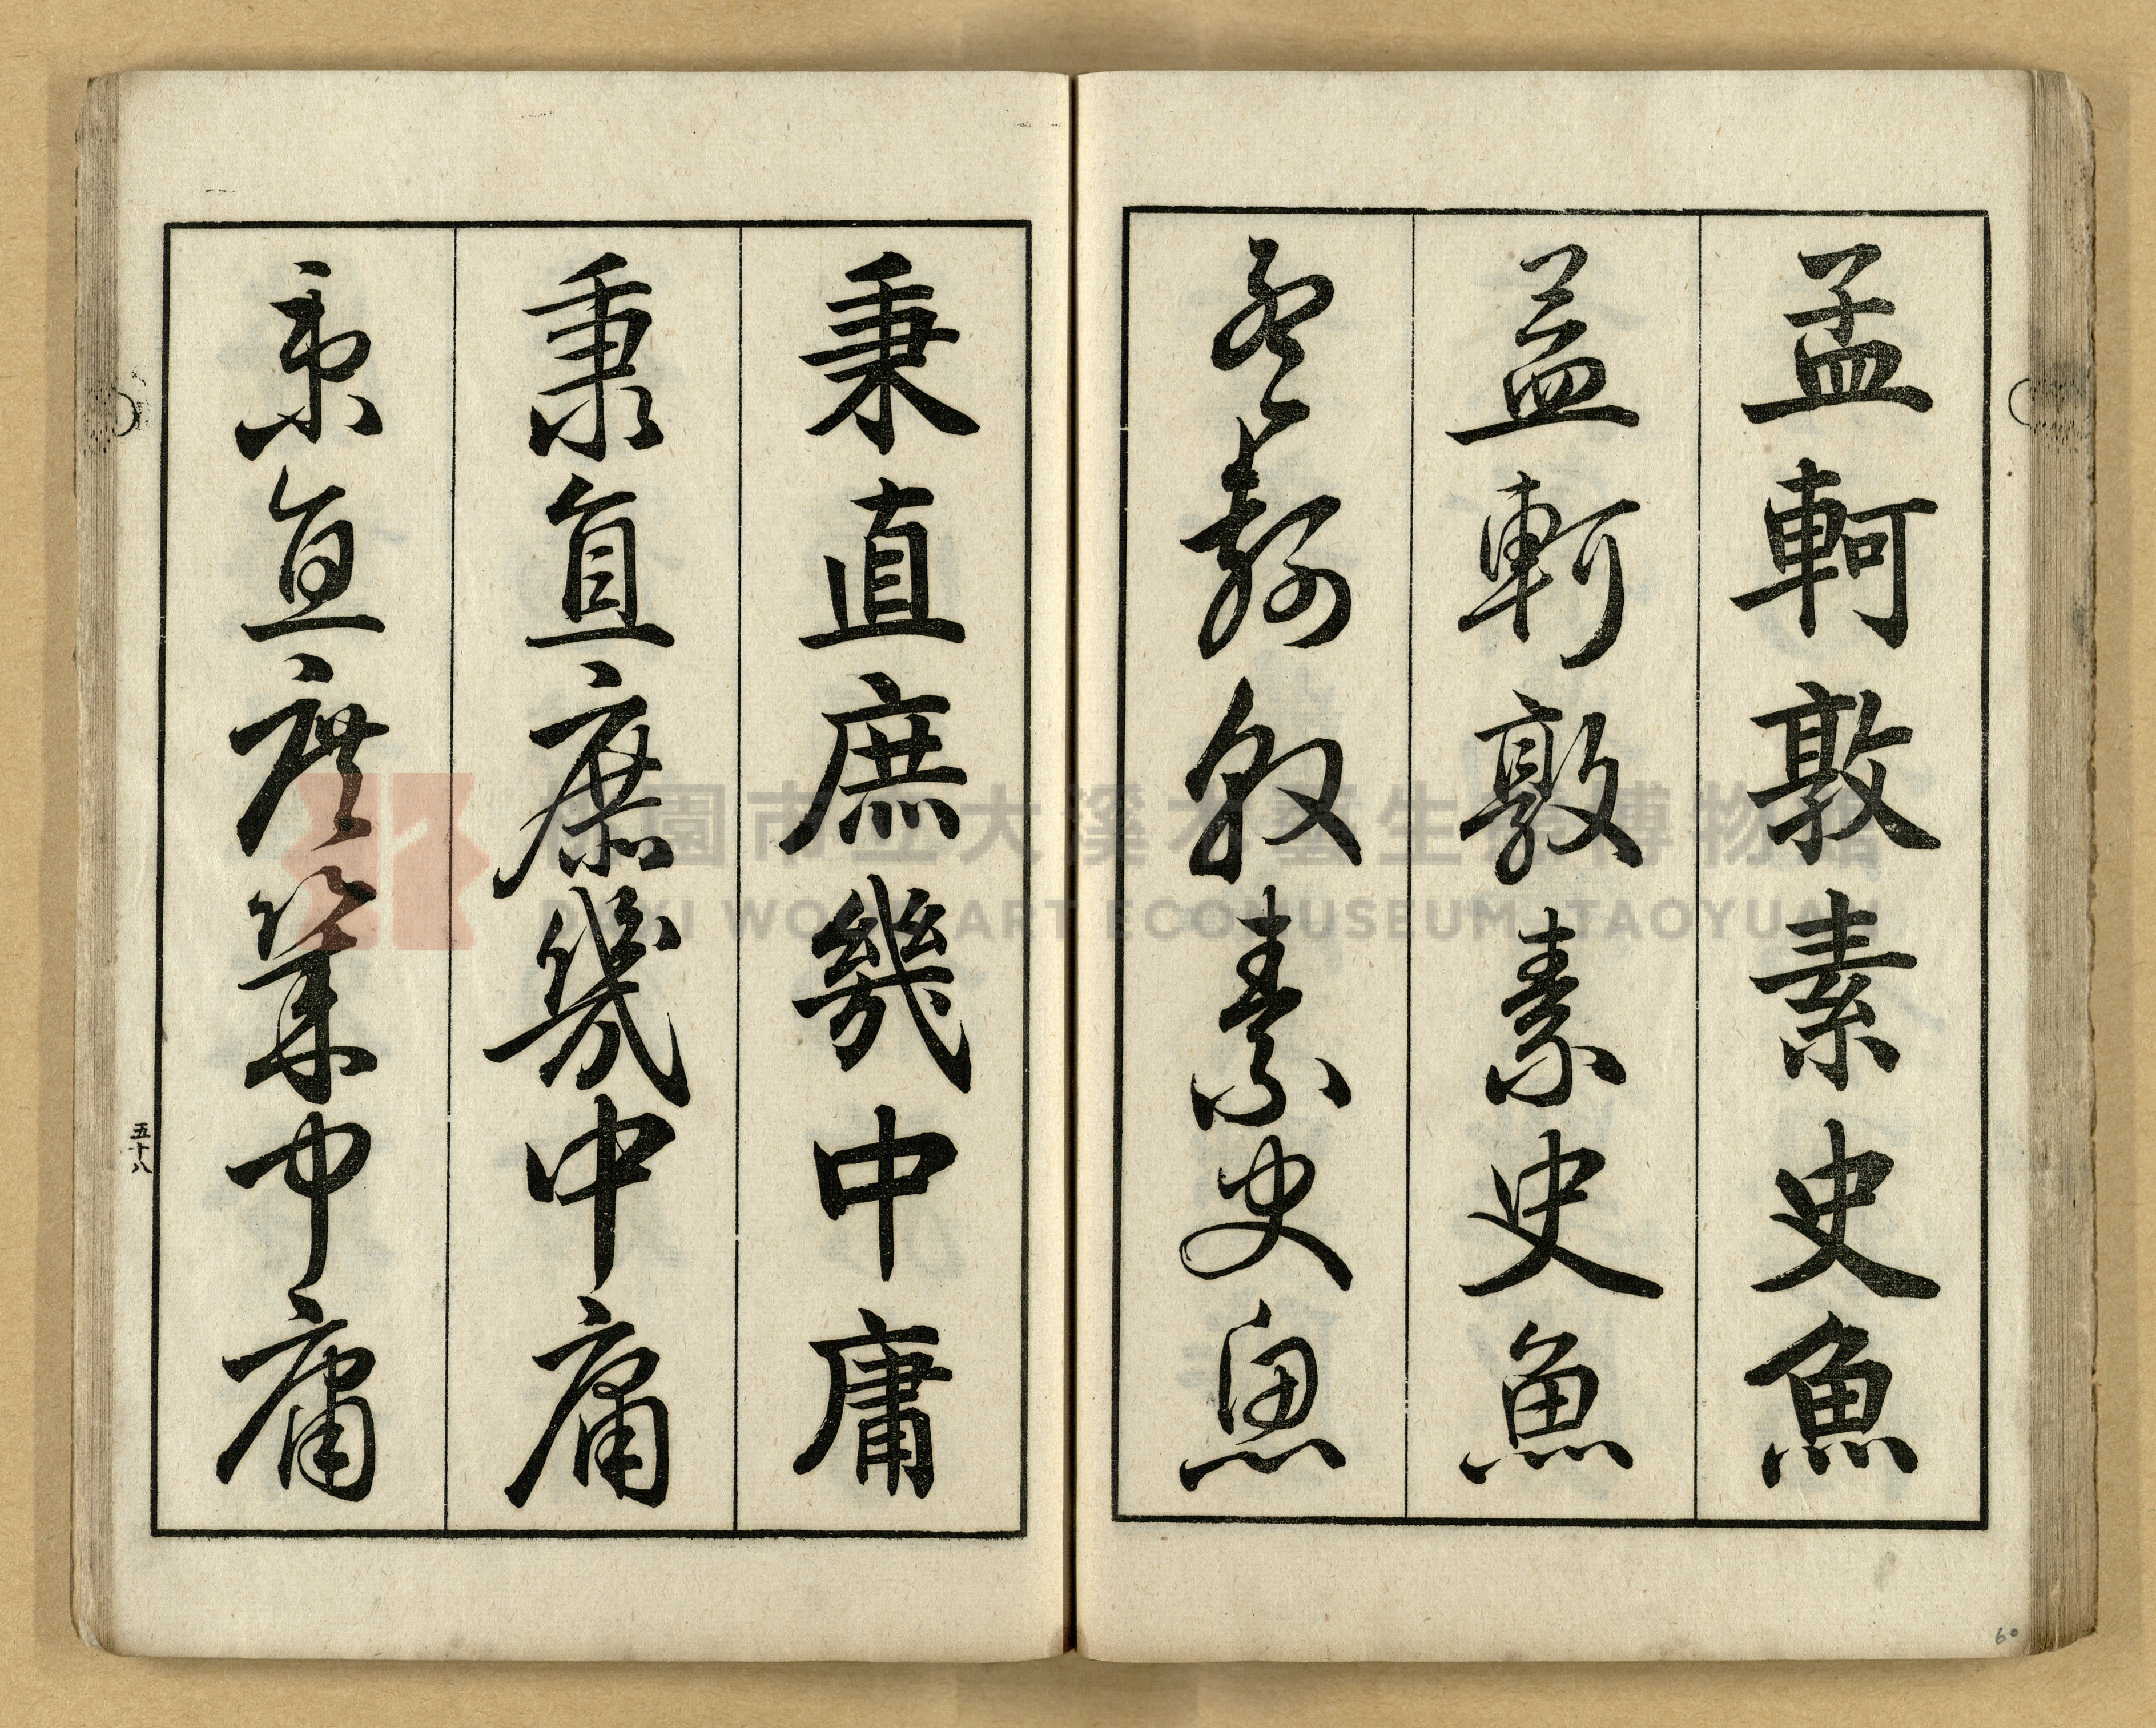 孟軻敦素史魚
孟軻敦素史魚
孟軻敦素史魚
秉直庶幾中庸
秉直庶幾中庸
秉直庶幾中庸
五十八
60
桃園市立大溪木藝生態博物館
DAXI WOOD ART ECOMUSEUM, TAOYUAN